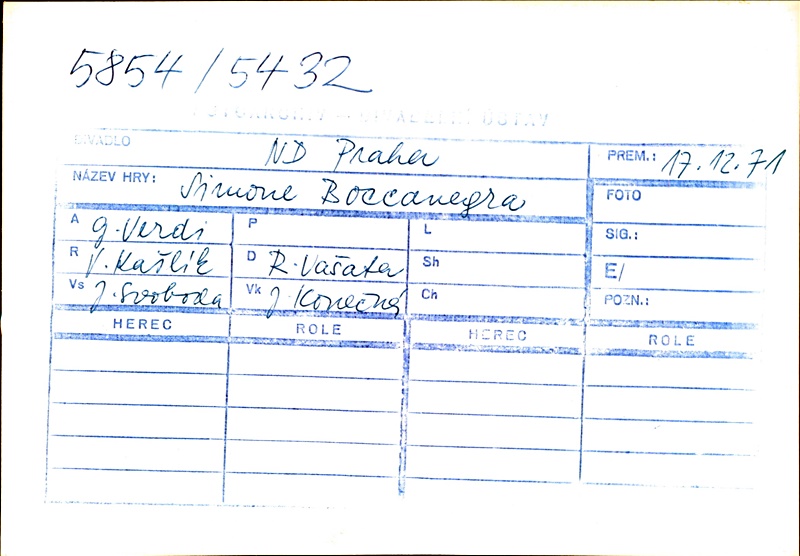 5854/5432
FOTOARCHIV – DIVADELNÍ ÚSTAV
DIVADLO ND Praha PREM.: 17.12.71
NÁZEV HRY: Simone Boccanegra FOTO
A G. Verdi P L SIG.:
R V. Kašlík D R. Vašata Sh E/
Vs J. Svoboda Vk J. Konečná Ch POZN.:
HEREC ROLE HEREC ROLE